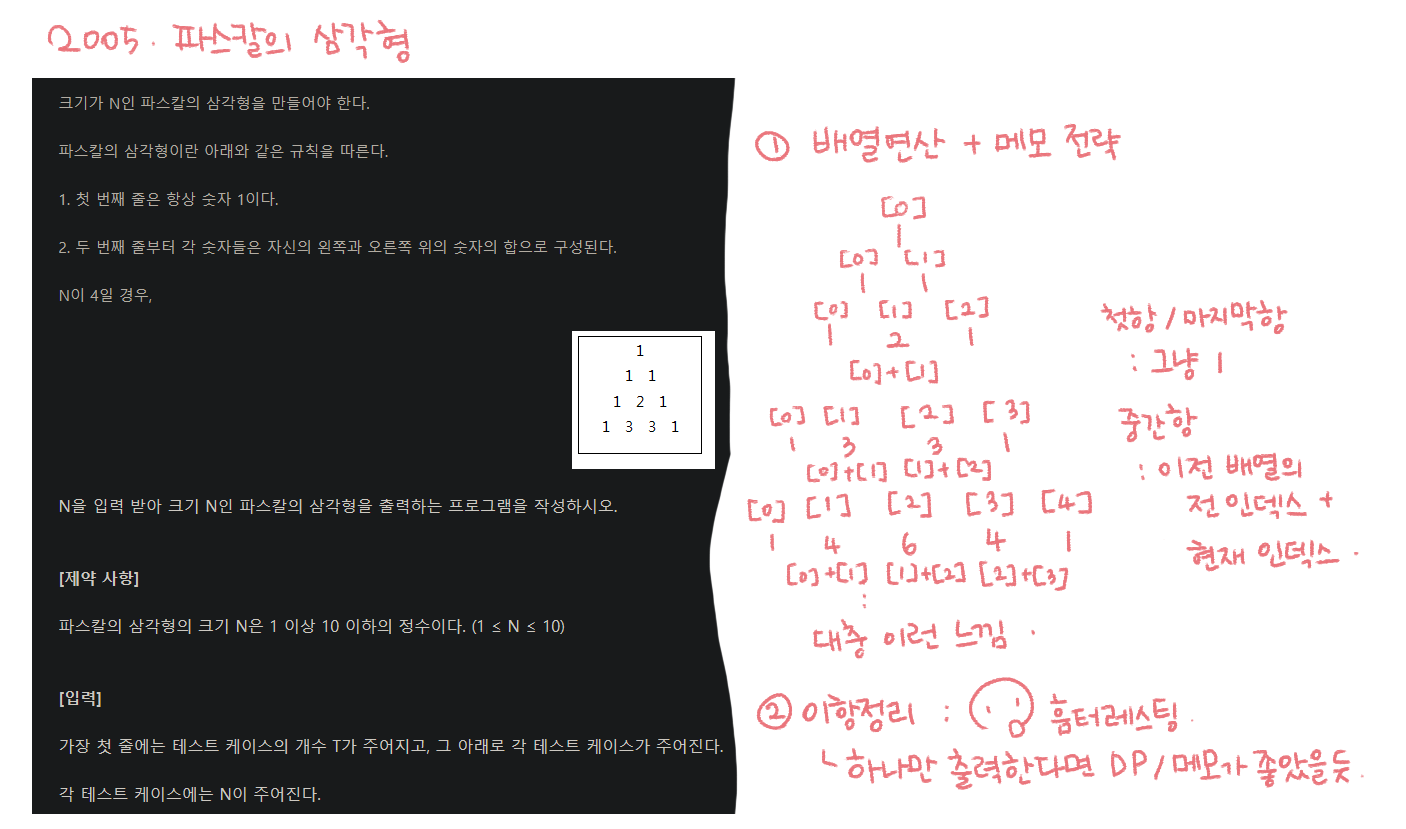 2005. 파스칼의 삼각형
크기가 N인 파스칼의 삼각형을 만들어야 한다.
파스칼의 삼각형이란 아래와 같은 규칙을 따른다.
1. 첫 번째 줄은 항상 숫자 1이다.
2. 두 번째 줄부터 각 숫자들은 자신의 왼쪽과 오른쪽 위의 숫자의 합으로 구성된다.
N이 4일 경우,
1
1 1
1 2 1
1 3 3 1
N을 입력 받아 크기 N인 파스칼의 삼각형을 출력하는 프로그램을 작성하시오.
[제약 사항]
파스칼의 삼각형의 크기 N은 1 이상 10 이하의 정수이다. (1 ≤ N ≤ 10)
[입력]
가장 첫 줄에는 테스트 케이스의 개수 T가 주어지고, 그 아래로 각 테스트 케이스가 주어진다.
각 테스트 케이스에는 N이 주어진다.
① 배열연산 + 메모 전략
[0]
1
[0] [1]
1 1
[0] [1] [2]
1 2 1
[0]+[1]
[0] [1] [2] [3]
1 3 3 1
[0]+[1] [1]+[2]
[0] [1] [2] [3] [4]
1 4 6 4 1
[0]+[1] [1]+[2] [2]+[3]
:
대충 이런 느낌 .
첫항 / 마지막항
: 그냥 1
중간항
: 이전 배열의
전 인덱스 +
현재 인덱스 .
② 이항정리 : 흠터레스팅.
ㄴ 하나만 출력한다면 DP / 메모가 좋았을듯.